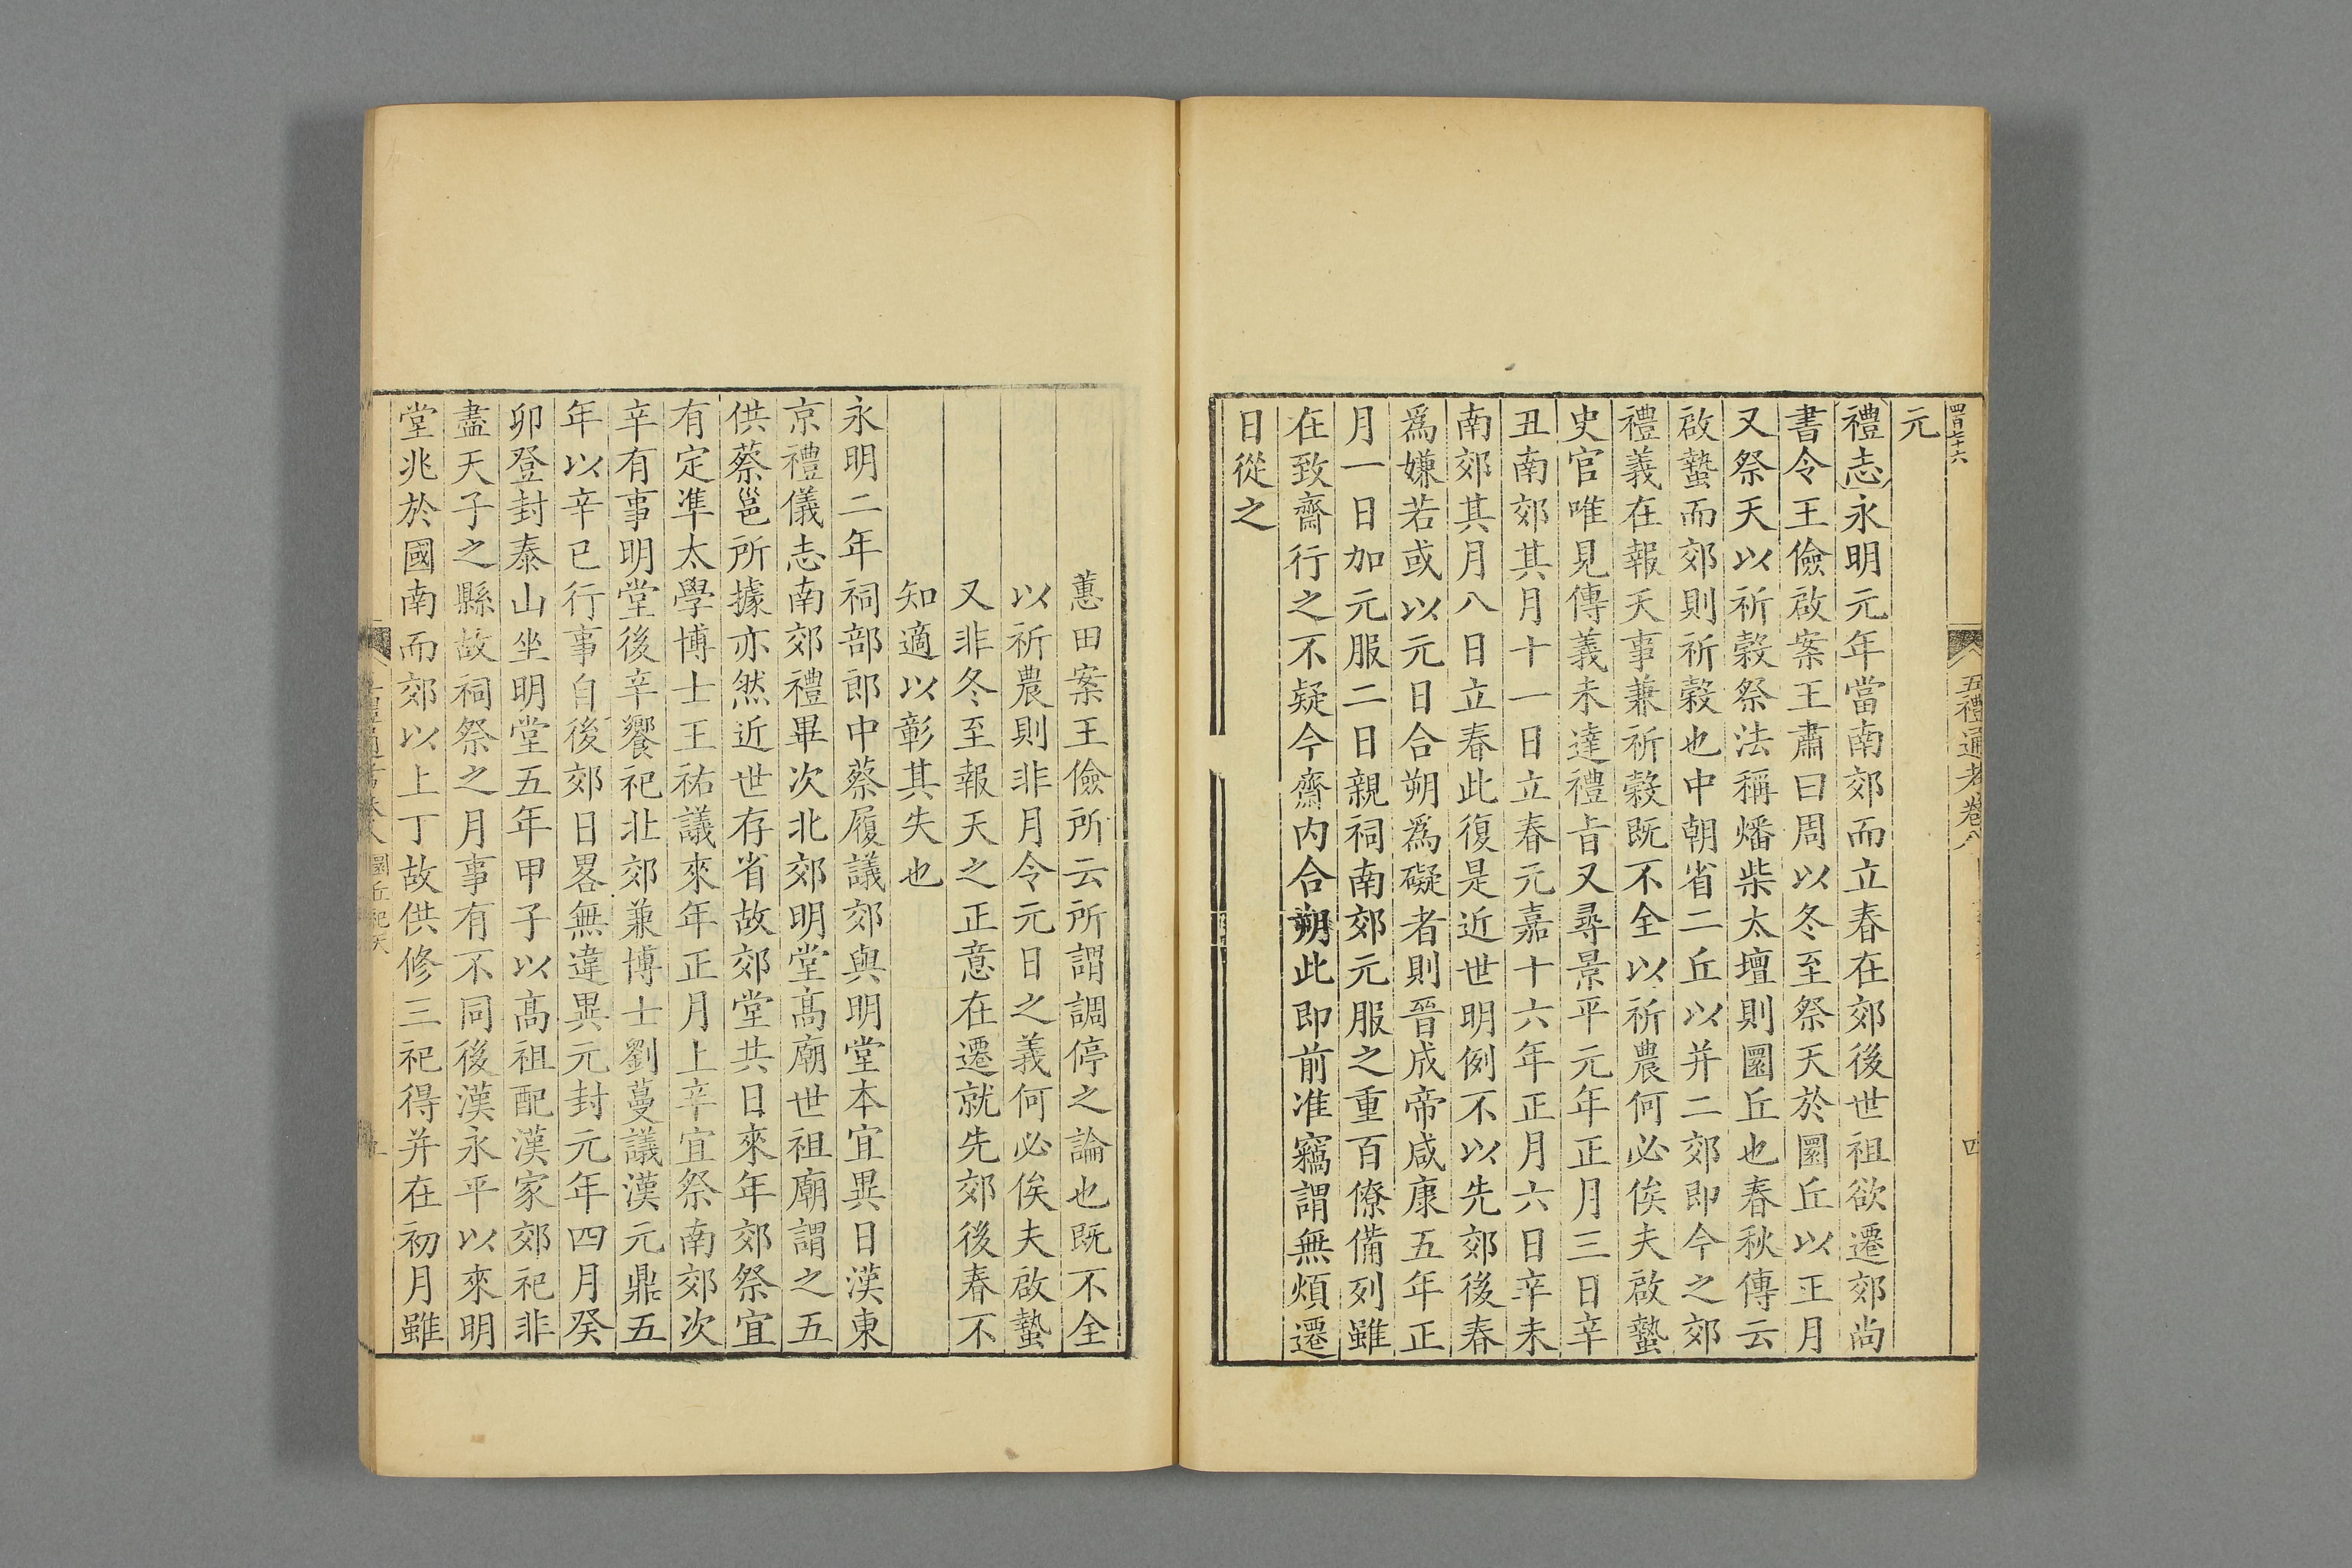 四百七十六
五禮通考卷八
四
元
禮志永明元年當南郊而立春在郊後世祖欲遷郊尚
書令王儉啟案王肅曰周以冬至祭天於圜丘以正月
又祭天以祈穀祭法稱燔柴太壇則圜丘也春秋傳云
啟蟄而郊則祈穀也中朝省二丘以并二郊即今之郊
禮義在報天事兼祈穀既不全以祈農何必俟夫啟蟄
史官唯見傳義未達禮旨又尋景平元年正月三日辛
丑南郊其月十一日立春元嘉十六年正月六日辛未
南郊其月八日立春此復是近世明例不以先郊後春
爲嫌若或以元日合朔爲礙者則晉成帝咸康五年正
月一日加元服二日親祠南郊元服之重百僚備列雖
在致齋行之不疑今齋内合朔此即前准竊謂無煩遷
日從之
蕙田案王儉所云所謂調停之論也既不全
以祈農則非月令元日之義何必俟夫啟蟄
又非冬至報天之正意在遷就先郊後春不
知適以彰其失也
永明二年祠部郎中蔡履議郊與明堂本宜異日漢東
京禮儀志南郊禮畢次北郊明堂高廟世祖廟謂之五
供蔡邕所據亦然近世存省故郊堂共日來年郊祭宜
有定準太學博士王祐議來年正月上辛宜祭南郊次
辛有事明堂後辛饗祀北郊兼博士劉蔓議漢元鼎五
年以辛巳行事自後郊日畧無違異元封元年四月癸
卯登封泰山坐明堂五年甲子以高祖配漢家郊祀非
盡天子之縣故祠祭之月事有不同後漢永平以來明
堂兆於國南而郊以上丁故供修三祀得并在初月雖
圜丘祀天